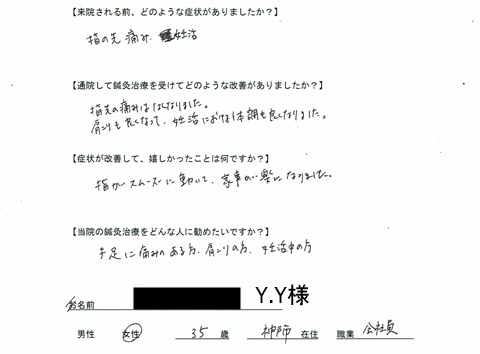 【来院される前、どのような症状がありましたか？】
指の先 痛み、妊活
【通院して鍼灸治療を受けてどのような改善がありましたか？】
指先の痛みはなくなりました。
肩こりも良くなって、妊活における体調も良くなりました。
【症状が改善して、嬉しかったことは何ですか？】
指がスムーズに動いて、家事が楽になりました。
【当院の鍼灸治療をどんな人に勧めたいですか？】
手足に痛みのある方、肩こりの方、妊活中の方
お名前 Y.Y様
男性 女性 35 歳 神戸市 在住 職業 会社員